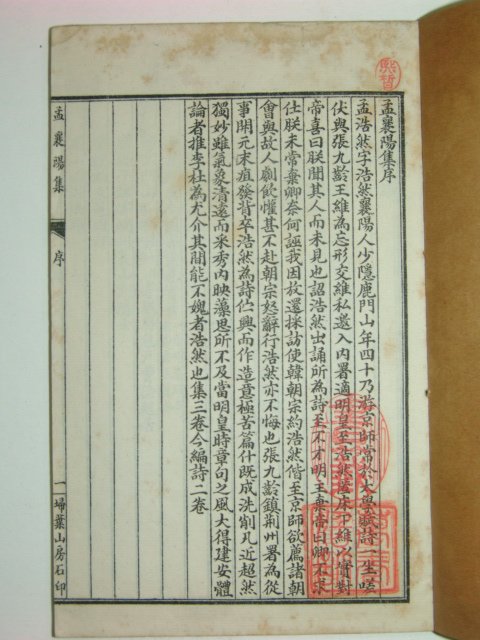 孟襄陽集序
孟浩然字浩然襄陽人少隱鹿門山年四十乃游京師常於太學賦詩一坐嗟
伏與張九齡王維為忘形交維私邀入內署適明皇至浩然匿床下維以實對
帝喜曰朕聞其人而未見也詔浩然出誦所為詩至不才明主棄帝曰卿不求
仕朕未常棄卿奈何誣我因放還採訪使韓朝宗約浩然偕至京師欲薦諸朝
會與故人劇飲懽甚不赴朝宗怒辭行浩然亦不悔也張九齡鎮荊州署為從
事開元末疽發背卒浩然為詩佇興而作造意極苦篇什既成洗削凡近超然
獨妙雖氣象清遠而采秀內映藻思所不及當明皇時章句之風大得建安體
論者推李杜為尤介其間能不媿者浩然也集三卷今編詩二卷
孟襄陽集
序
一
埽葉山房石印
熙哲